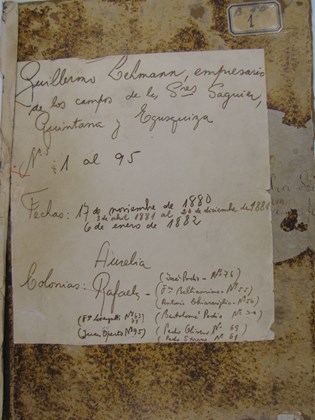 1
Guillermo Lehmann, empresario
de los campos de los Sres Saguier,
Quintana y Egusquiza
Nº: 1 al 95
Fechas: 17 de noviembre de 1880
3 de abril 1881 al 26 de diciembre de 1881
6 de enero de 1882
Aurelia
Colonias: Rafaela - (José Pedro - Nº 76)
Nº 55)
(Antonio Nº 56)
(Bartolomé Podio Nº 70)
(Juan Nº 95) (Pedro Nº 69
(Pedro Nº 69)